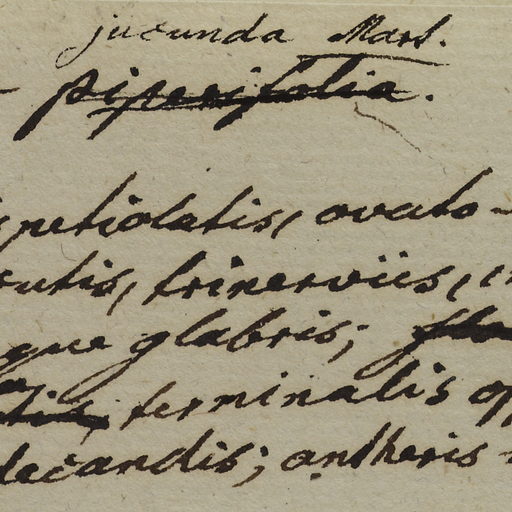 jucunda Mart.
- piperifolia.
petiolatis, ovato-
cutis, trinerviis, in
que glabris;
terminalis op
decandis; antheris